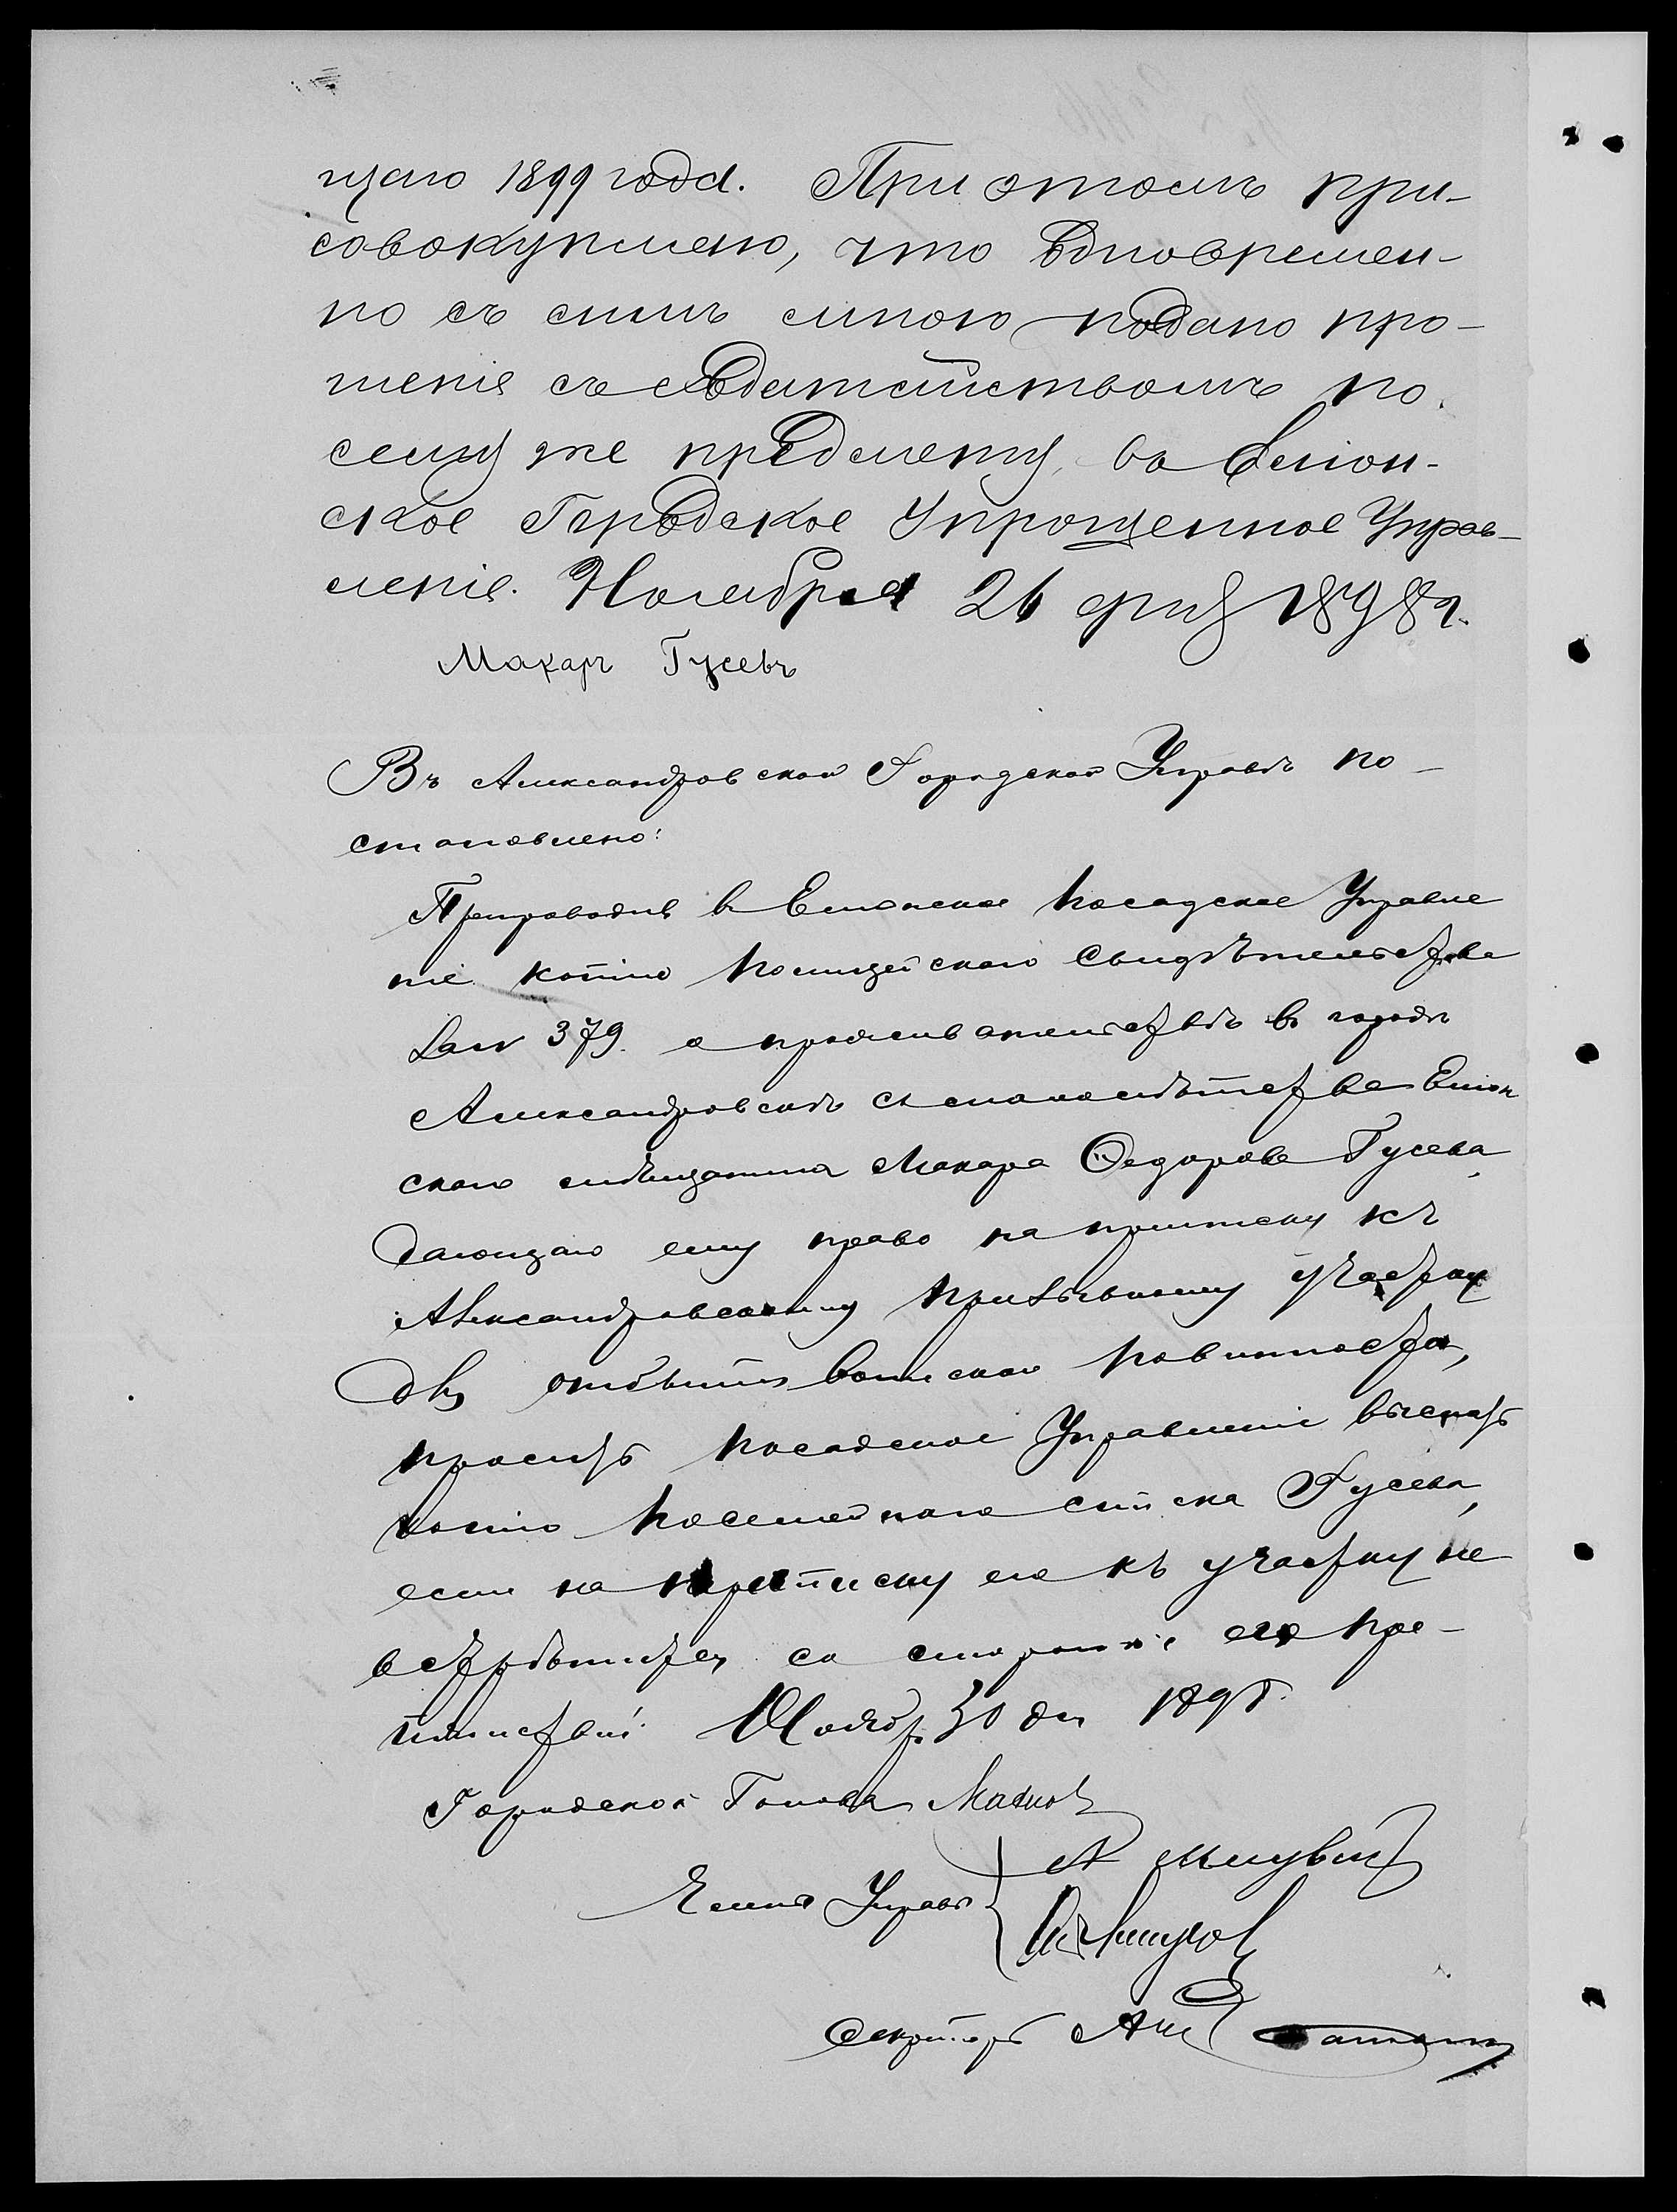 щаго 1899 года. При этомъ при-
совокупляю, что одновремен-
но съ симъ мною подано про-
шеніе съ ходатайствомъ по
сему же предмету, въ Елион-
ское Городское Упрощенное Управ-
леніе. Ноября 26 дня 1898 г.
Макаръ Гусевъ
Въ Александровской Городской Управѣ по-
становлено:
Препроводивъ въ Елионское Посадское Управле
ніе копію Полицейского Свидѣтельства
за № 379 о проживательствѣ въ городѣ
Александровскѣ съ малолѣтства Елион
скаго мѣщанина Макара Ѳедорова Гусева,
дающаго ему право на приписку къ
Александровскому призывному участку
для отбытія воинской повинности,
просить Посадское Управленіе выслать
копію посемейнаго списка Гусева,
если на приписку его къ участку не
встрѣтится со стороны его пре-
пятствій. Ноябр. 30 дня 1898.
Городской Голова
Члены Управы
Секретарь